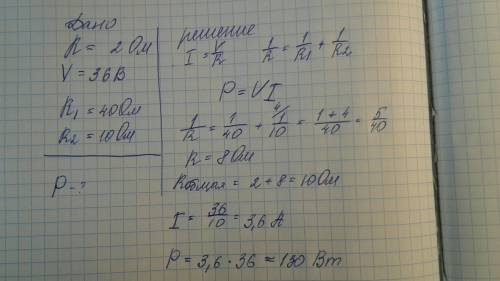 Дано
R = 2 Ом
V = 36В
R1 = 40 Ом
R2 = 10 Ом
P - ?
решение
I = V/R 1/R = 1/R1 + 1/R2
P = VI
1/R = 1/40 + 4/ 1/10 = (1+4)/40 = 5/40
R = 8 Ом
Rобщая = 2 + 8 = 10 Ом
I = 36/10 = 3,6 А
P = 3,6 · 36 = 130 Вт